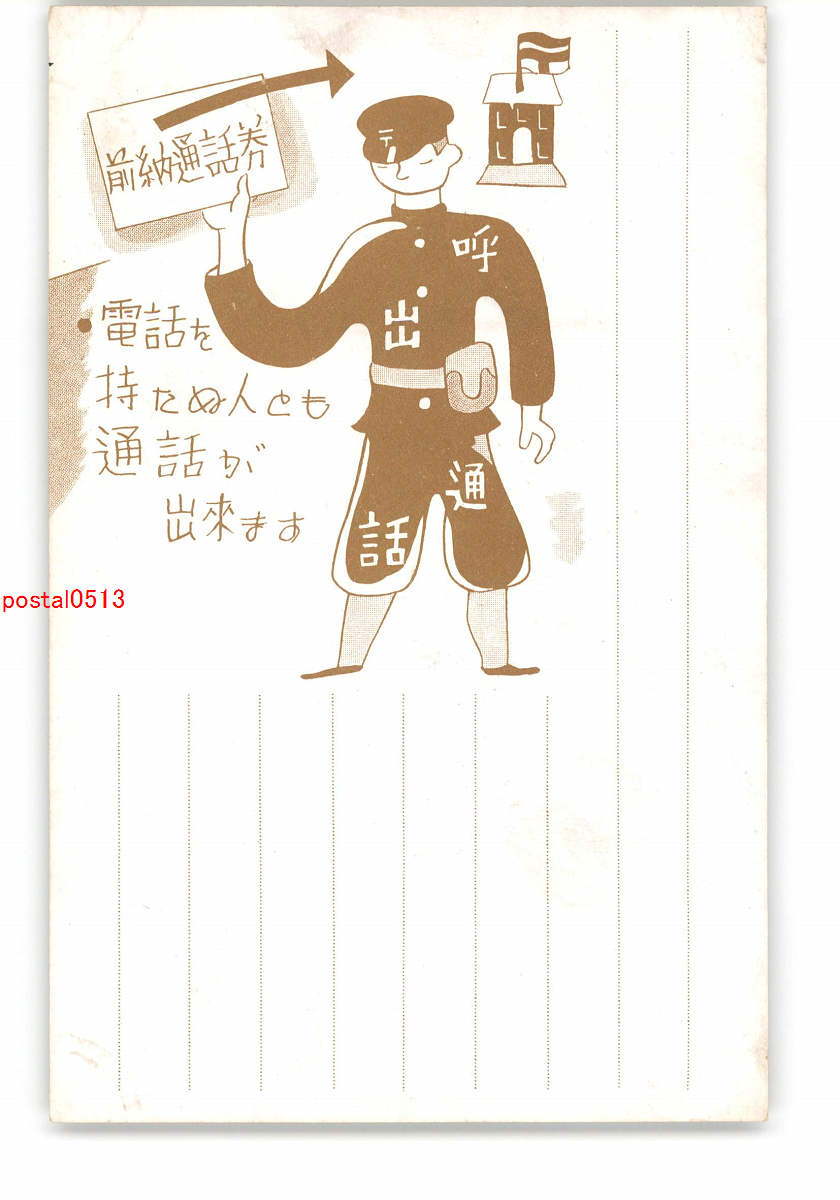 前納通話券
〒
呼出
通話
●電話を
持たぬ人とも
通話が
出來ます
postal0513